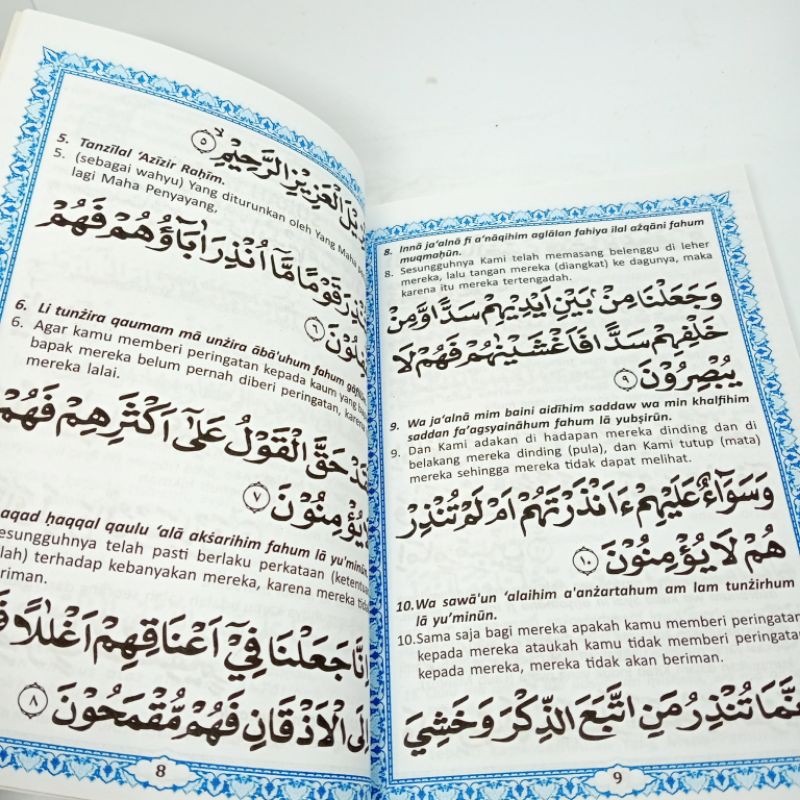 الْعَزِيْزِ الرَّحِيْمِۙ ٥
5. Tanzīlal ‘Azīzir Raḥīm.
5. (sebagai wahyu) Yang diturunkan oleh Yang Maha
lagi Maha Penyayang,
قَوْمًا مَّآ اُنْذِرَ اٰبَاۤؤُهُمْ فَهُمْ
٦
6. Li tunżira qaumam mā unżira ābā'uhum fahum
6. Agar kamu memberi peringatan kepada kaum yang
bapak mereka belum pernah diberi peringatan, karena
mereka lalai.
حَقَّ الْقَوْلُ عَلٰٓى اَكْثَرِهِمْ فَهُمْ
يُؤْمِنُوْنَ ٧
aqad ḥaqqal qaulu ‘alā akṡarihim fahum lā yu'minūn.
esungguhnya telah pasti berlaku perkataan (ketentuan
lah) terhadap kebanyakan mereka, karena mereka
eriman.
اِنَّا جَعَلْنَا فِيْٓ اَعْنَاقِهِمْ اَغْلٰلًا
اِلَى الْاَذْقَانِ فَهُمْ مُّقْمَحُوْنَ ٨
8
8. Innā ja‘alnā fī a‘nāqihim aglālan fahiya ilal ażqāni fahum
muqmaḥūn.
8. Sesungguhnya Kami telah memasang belenggu di leher
mereka, lalu tangan mereka (diangkat) ke dagunya, maka
karena itu mereka tertengadah.
وَجَعَلْنَا مِنْۢ بَيْنِ اَيْدِيْهِمْ سَدًّا وَّمِنْ
خَلْفِهِمْ سَدًّا فَاَغْشَيْنٰهُمْ فَهُمْ لَا
يُبْصِرُوْنَ ٩
9. Wa ja‘alnā mim baini aidīhim saddaw wa min khalfihim
saddan fa'agsyaināhum fahum lā yubṣirūn.
9. Dan Kami adakan di hadapan mereka dinding dan di
belakang mereka dinding (pula), dan Kami tutup (mata)
mereka sehingga mereka tidak dapat melihat.
وَسَوَاۤءٌ عَلَيْهِمْ ءَاَنْذَرْتَهُمْ اَمْ لَمْ تُنْذِرْ
هُمْ لَا يُؤْمِنُوْنَ ١٠
10. Wa sawā'un ‘alaihim a'anżartahum am lam tunżirhum
lā yu'minūn.
10. Sama saja bagi mereka apakah kamu memberi peringatan
kepada mereka ataukah kamu tidak memberi peringatan
kepada mereka, mereka tidak akan beriman.
تُنْذِرُ مَنِ اتَّبَعَ الذِّكْرَ وَخَشِيَ
9